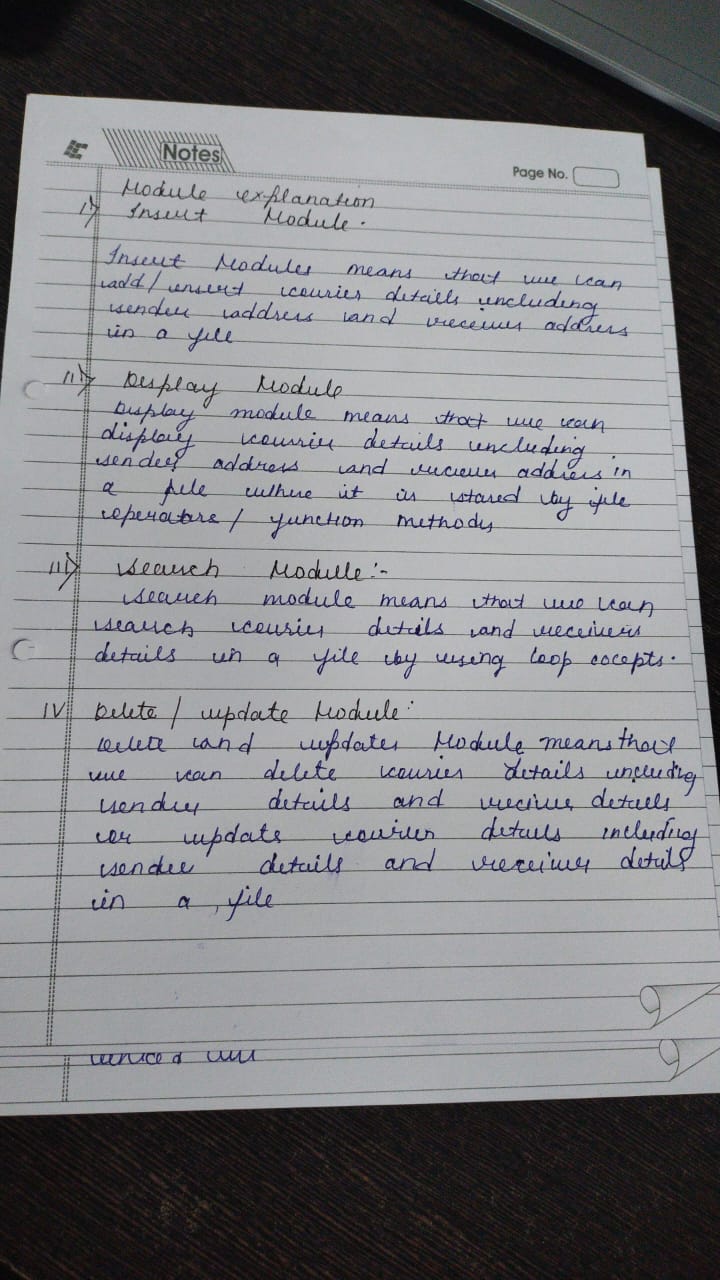 Notes
Page No.
Module explanation
i) Insert Module.
Insert Modules means that we can
add/insert courier details including
sender address and receiver address
in a file
ii) Display Module
Display module means that we can
display courier details including
sender address and reciever address in
a file where it is stored by file
operators / function methods
iii) Search Module:-
Search module means that we can
search courier details and receivers
details in a file by using loop cocepts.
IV Delete / update Module:
Delete and updates Module means that
we can delete courier details including
sender details and reciver details
or update courier details including
sender details and receiver details
in a file